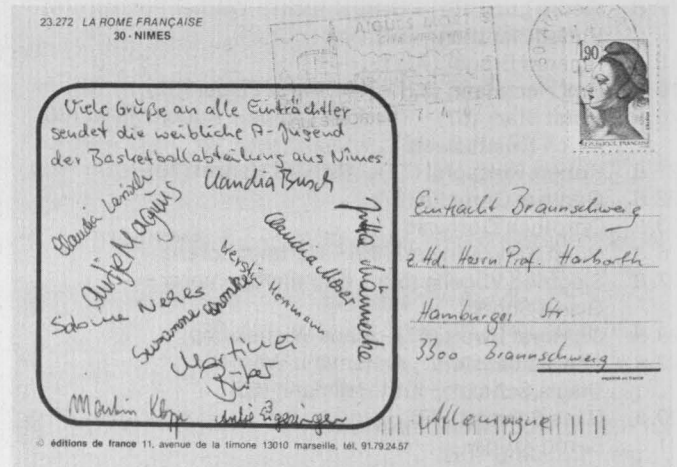 23.272 LA ROME FRANÇAISE
30 - NIMES
1,90
Viele Grüße an alle Einträchtler
sendet die weibliche A-Jugend
der Basketballabteilung aus Nîmes.
Claudia Busch
Claudia
Antje Magnus
Claudia Moser
Jutta Männecke
Kerstin Hermann
Sabine Nehes
Susanne
Martina
Martin
Eintracht Braunschweig
z. Hd. Herrn Prof. Harborth
Hamburger Str
3300 Braunschweig
Allemagne
© éditions de france 11, avenue de la timone 13010 marseille, tél. 91.79.24.57